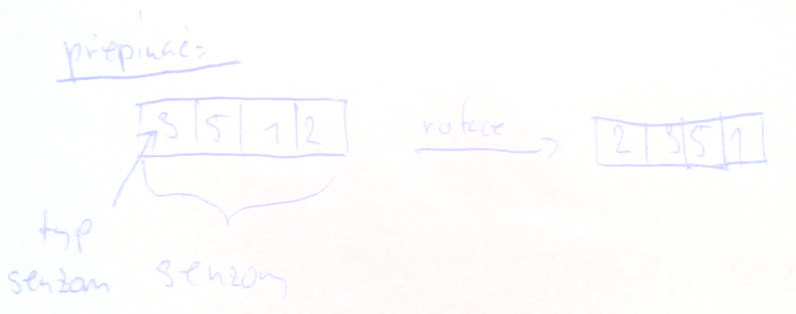 přepínač:
3 5 1 2 rotace 2 3 5 1
typ senzory
senzoru